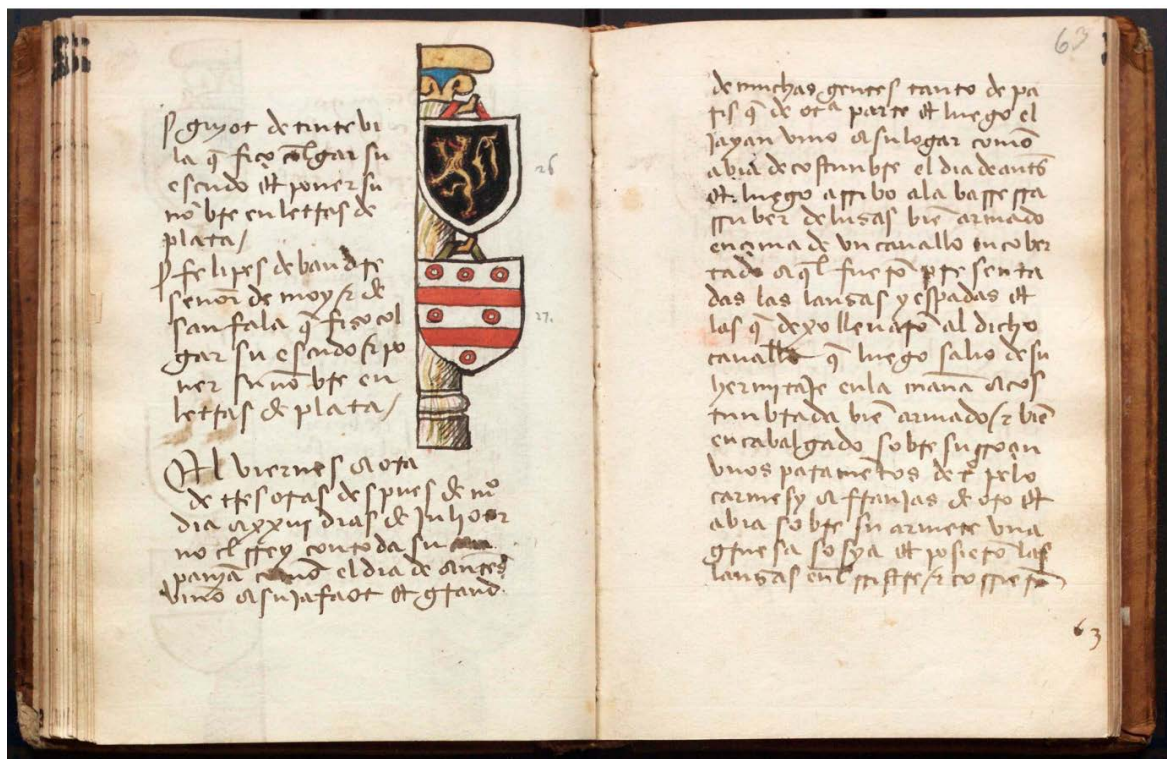 guyot de tinte vi
la q̃ fiço colgar su
escudo et poner su
nõbre en letras de
plata /
felipes de baudre
señor de moy r de
sanfala q̃ fiço col
gar su escudo r po
ner su nõbre en
letras de plata /
26
27.
El viernes a ora
de tres oras despues de mº
dia a xxiij dias de Julho
no el rrey con toda su
panyã como el dia de antes
vino a su jafaot et grand
63
de muchas gentes tanto de pa
ris q̃ de otª parte et luego el
jayan vino a su logar comõ
abia de costunbre el dia de antẽs
et luego arribo a la
de lusas biẽ armado
ençima de un cavallo encober
tado a q̃l fuerõ presenta
das las lansas y espadas et
las q̃ dexo llevarõ al dicho
cavallº q̃ luego salio de su
hermitaje en la manã acos
tunbrada biẽ armado r biẽ
encabalgado sobre su
unos paramẽtos de pelo
carmesy a franjas de oro et
abia sobre su armete una
gruesa et posierõ las
lansas en rristre r corrierõ
63